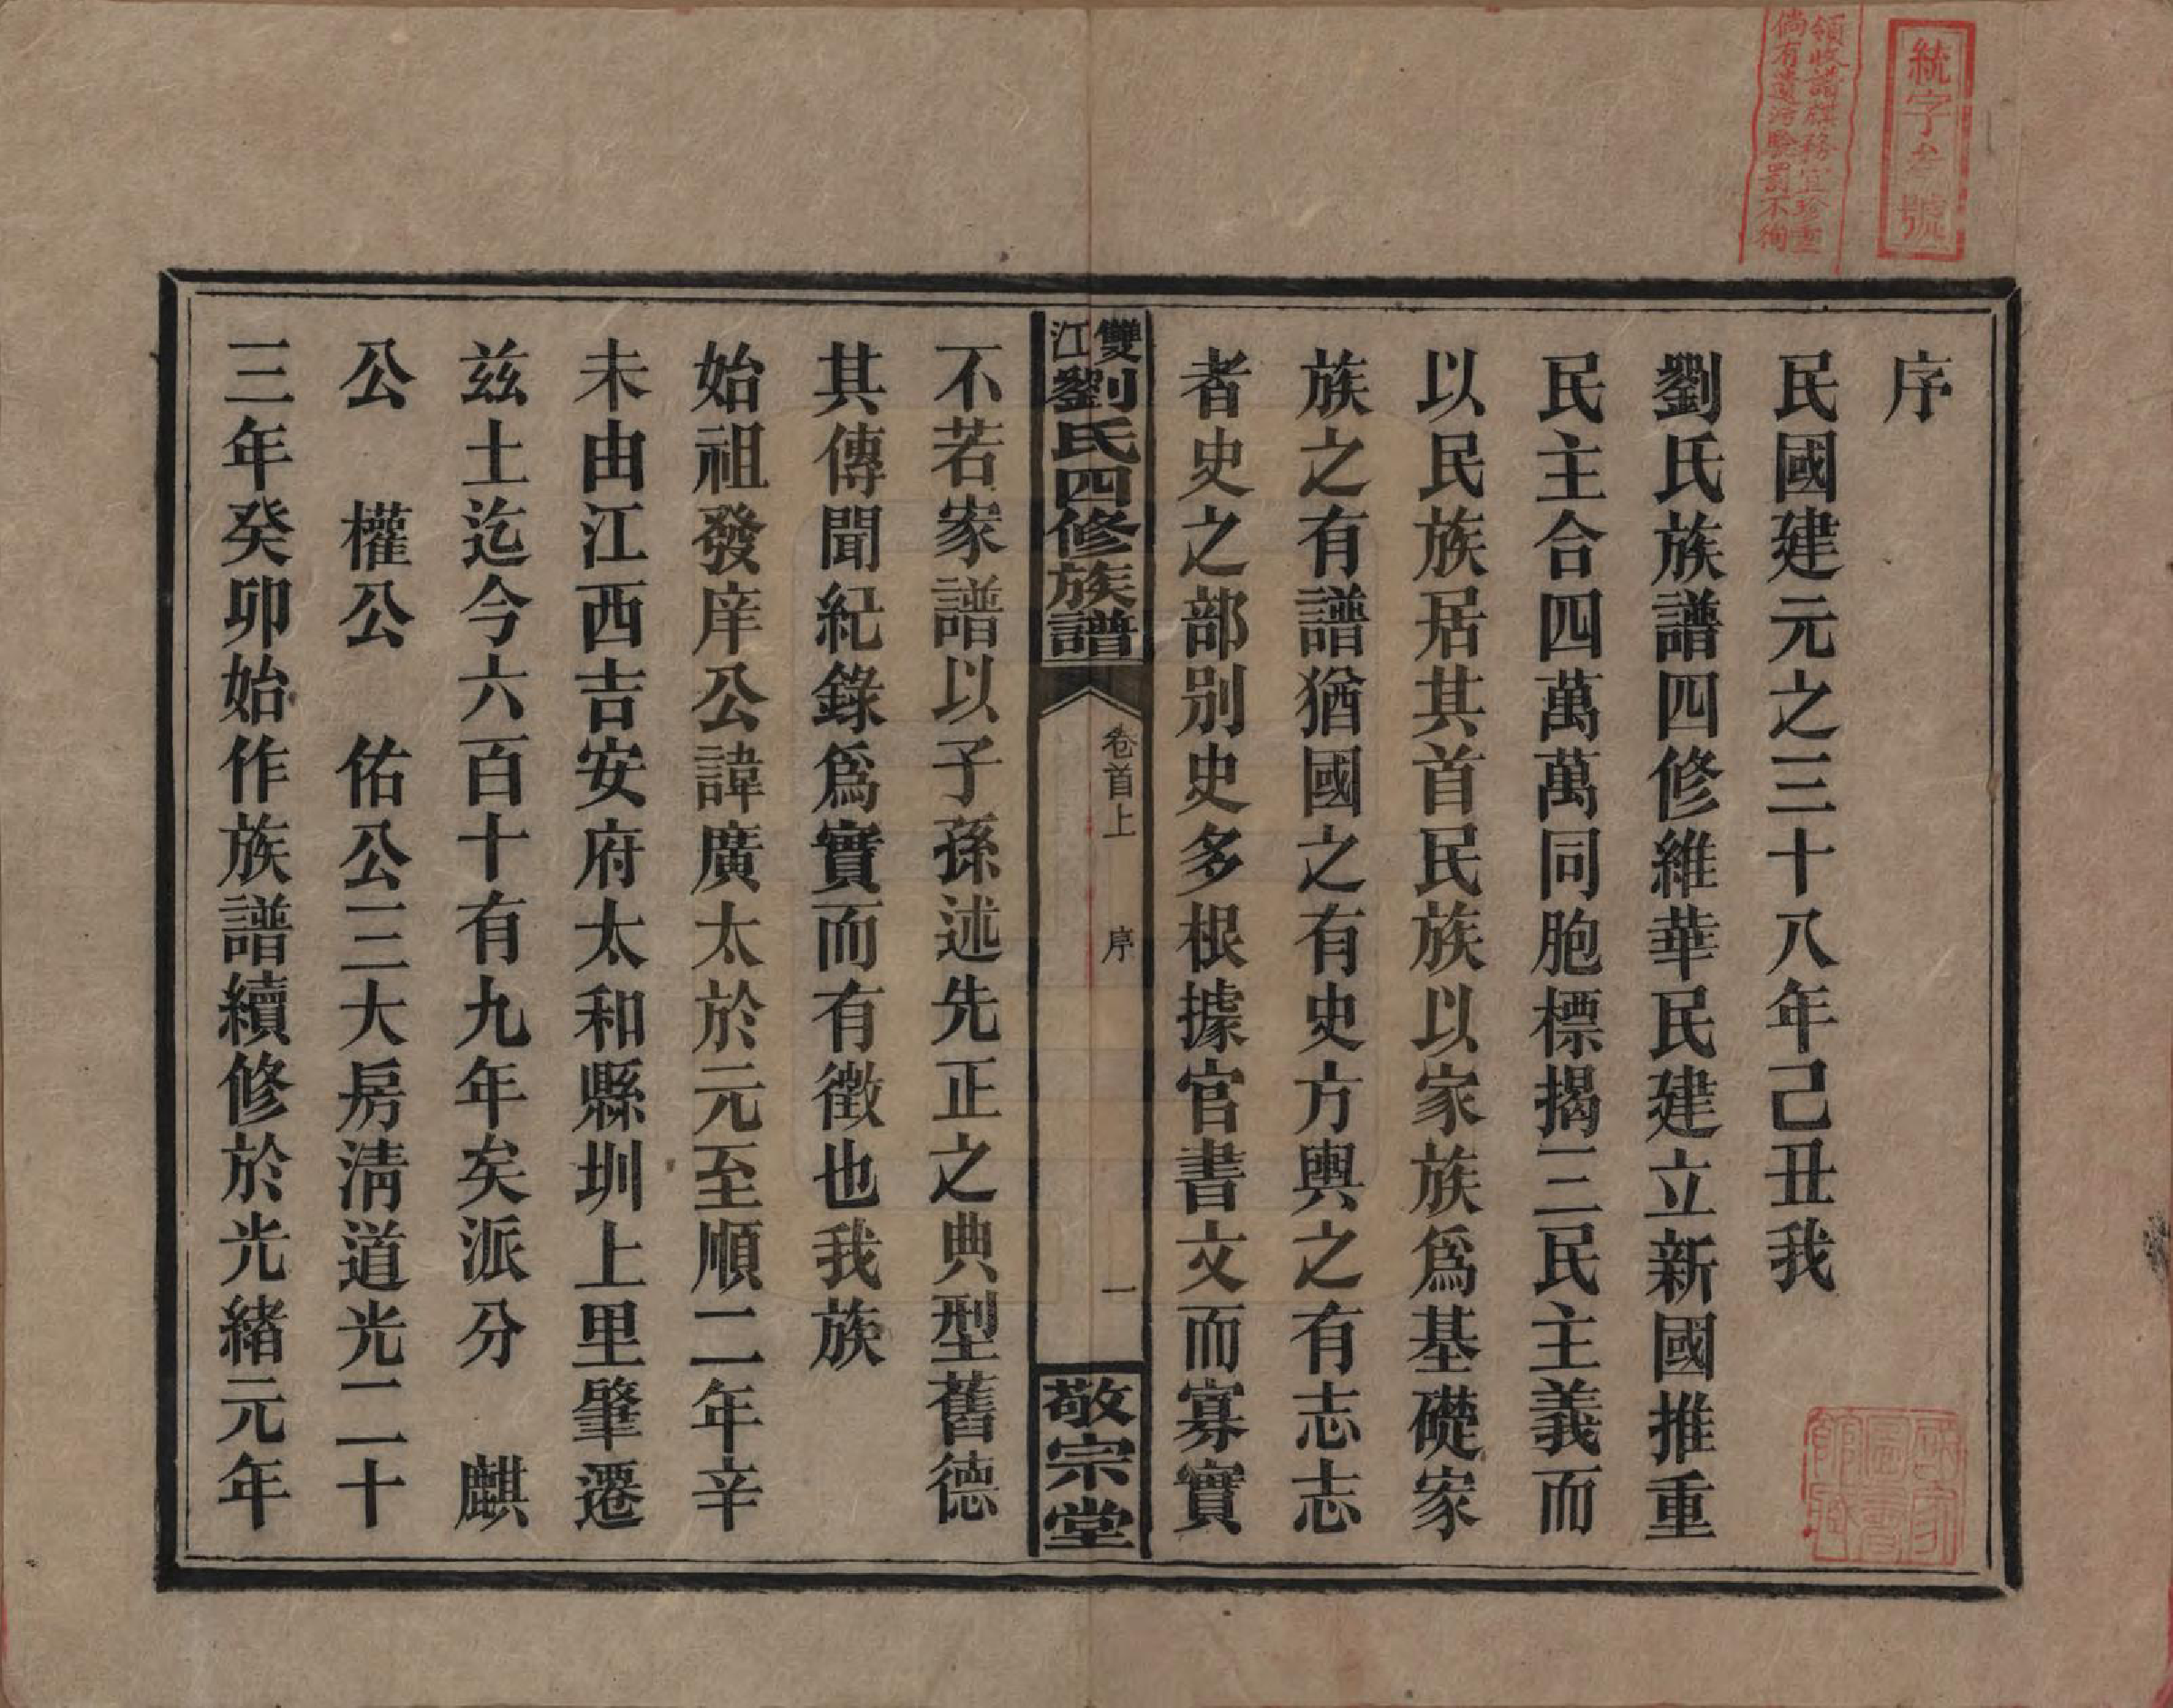 統字叁號
領收譜牒務宜珍重
倘有遺污驗罰不徇
序
民國建元之三十八年己丑我
劉氏族譜四修維華民建立新國推重
民主合四萬萬同胞標揭三民主義而
以民族居其首民族以家族爲基礎家
族之有譜猶國之有史方輿之有志志
者史之部別史多根據官書文而寡實
雙江劉氏四修族譜
卷首上
序
一
敬宗堂
不若家譜以子孫述先正之典型舊德
其傳聞紀錄爲實而有徵也我族
始祖發庠公諱廣太於元至順二年辛
未由江西吉安府太和縣圳上里肇遷
兹土迄今六百十有九年矣派分　麒
公　權公　佑公三大房淸道光二十
三年癸卯始作族譜續修於光緒元年